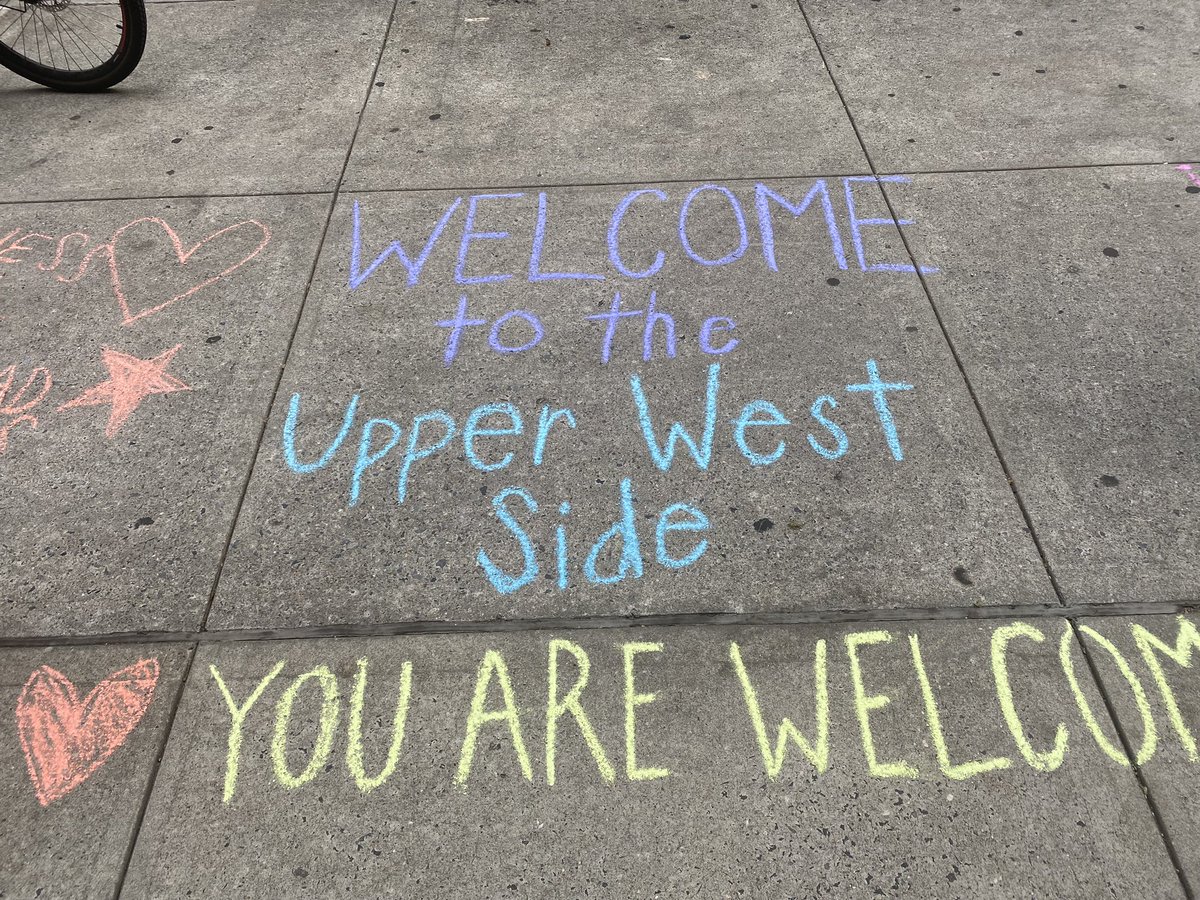 WELCOME
to the
Upper West
Side
YOU ARE WELCOM